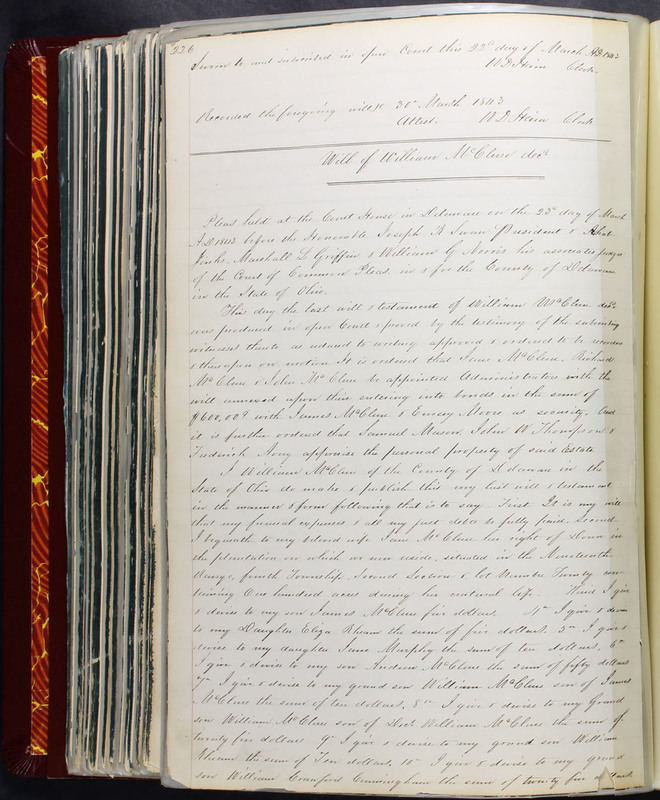 226
Sworn to and subscribed in open Court this 22d day of March AD 1843
W D Heim Clerk.
Recorded the foregoing will 30th March 1843
Attest. W D Heim Clerk
Will of William McClure decd
Pleas held at the Court House in Delaware on the 22d day of March
A.D 1843 before the Honorable Joseph R Swan President &
Jinks, Marshall L Griffin & William G Norris his associate Judges
of the Court of Common Pleas in & for the County of Delaware
in the State of Ohio.
This day the last will & testament of William McClure decd
was produced in open Court & proved by the testimony of the subscribing
witnesses thereto as reduced to writing approved & ordered to be recorded
& thereupon on motion It is ordered that Jane McClure, Richard
McClure & John McClure be appointed Administrators with the
will annexed upon their entering into bonds in the sum of
$600,00 with James McClure & Emery Moore as security, And
it is further ordered that Samuel Mason, John W Thompson &
Frederick Avery appraise the personal property of said Estate
I William McClure of the County of Delaware in the
State of Ohio do make & publish this my last will & testament
in the manner & form following that is to say. First It is my will
that my funeral expenses & all my just debts be fully paid. Second
I bequeath to my beloved wife Jane McClure her right of Dower in
the plantation on which we now reside, situated in the Nineteenth
Range, fourth Township Second Section & lot Number Twenty con-
taining One hundred acres during her natural life. Third I give
& devise to my son James McClure five dollars. 4th I give & devise
to my Daughter Eliza Rheam the sum of five dollars. 5th I give &
devise to my daughter Jane Murphy the sum of ten dollars. 6th
I give & devise to my son Andrew McClure the sum of fifty dollars
7th I give & devise to my grand son William McClure son of James
McClure the sum of ten dollars. 8th I give & devise to my Grand
son William McClure son of Doct William McClure the sum of
twenty five dollars 9th I give & devise to my grand son William
Rheam the sum of Ten dollars. 10th I give & devise to my grand
son William Crawford Cunningham the sum of twenty five dollars.